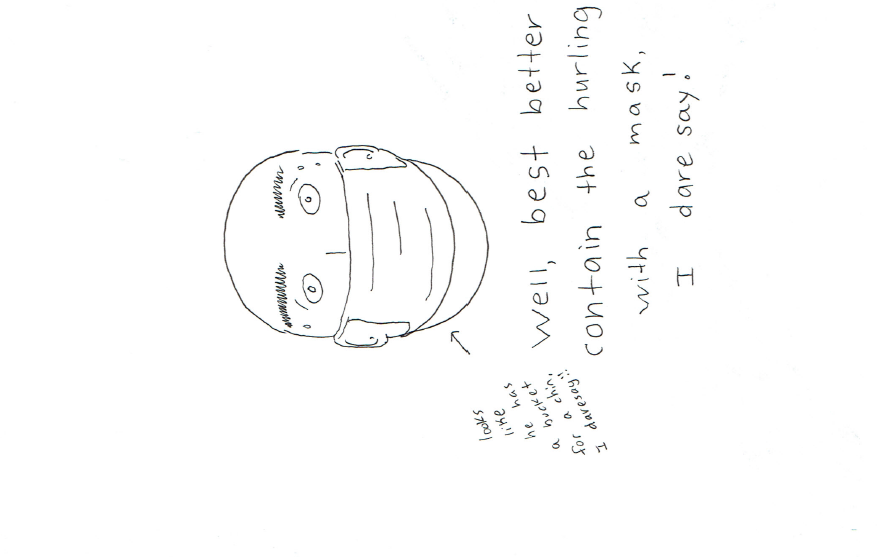 well, best better
contain the hurling
with a mask,
I dare say!
looks
like
he has
a bucket
for a chin,
I daresay!!